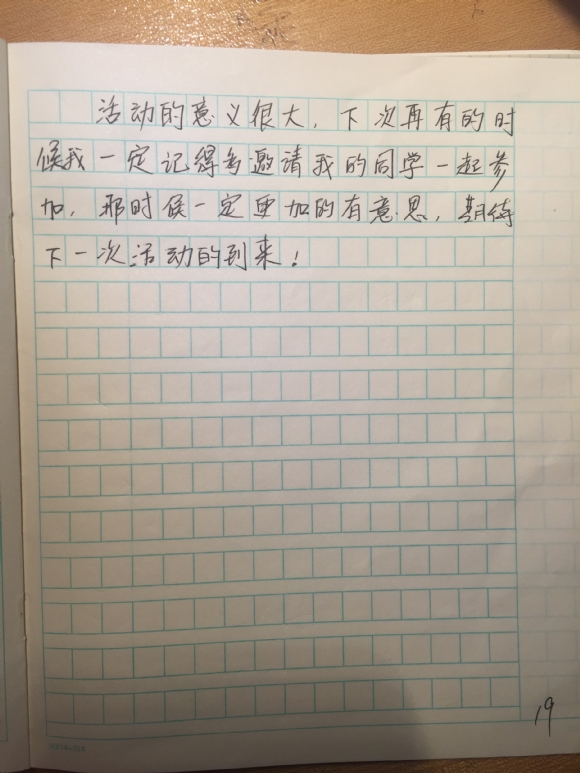 活动的意义很大，下次再有的时
候我一定记得多邀请我的同学一起参
加，那时候一定更加的有意思，期待
下一次活动的到来！
19